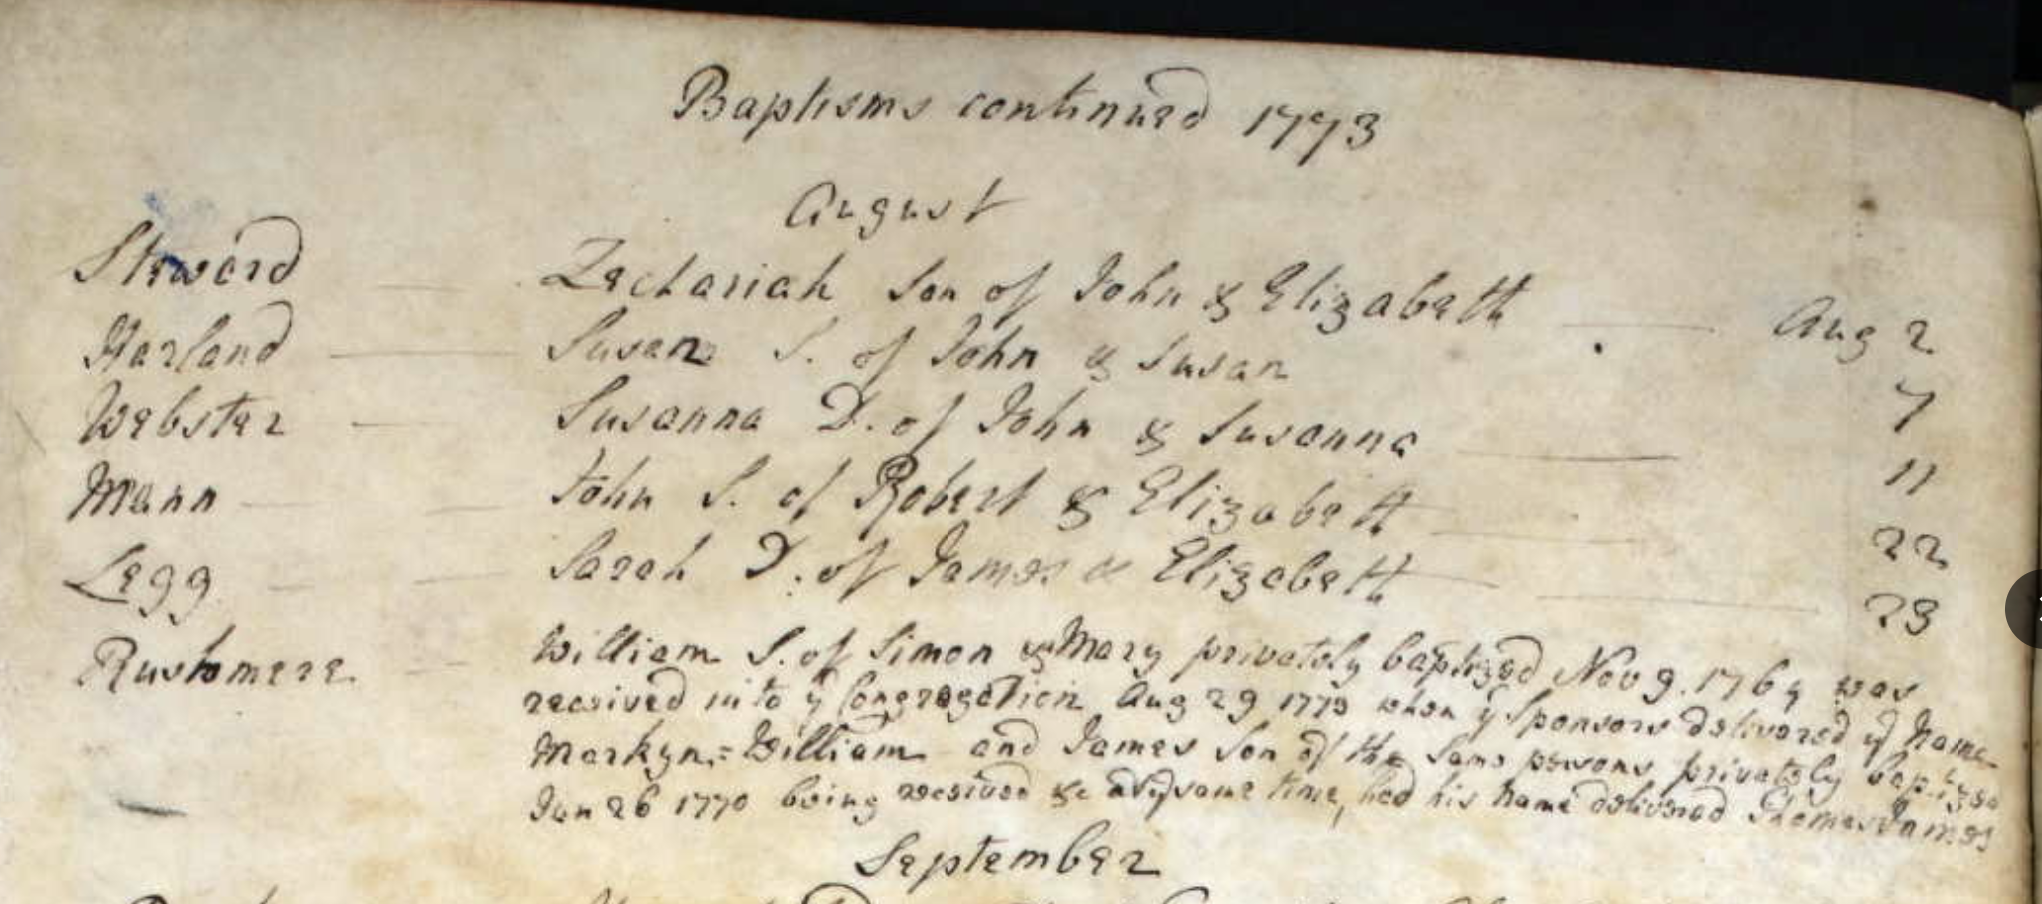 Baptisms continued 1773
August
Steward Zachariah Son of John & Elizabeth Aug 2
Harland Susan S. of John & Susan 7
Webster Susanna D. of John & Susanna 11
Mann John S. of Robert & Elizabeth 22
Legg Sarah D. of James & Elizabeth 23
Rushmere William S. of Simon & Mary privately baptized Nov 9. 1764 was
received into ye Congregation Aug 29 1773 when ye Sponsors delivered ye Name
William and James Son of the same persons privately baptized
Jan 26 1770 being received &c at ye same time, had his Name delivered Thomas James
September